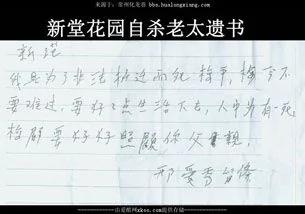 来源：常州化龙巷 bbs.hualongxiang.com
新堂花园自杀老太遗书
我是为了非法拆迁而死
要难过，要好好点生活下去，人中多有一死，
要好好照顾你父亲，
邢爱秀留条
由爱酷网xkoo.com提供存储